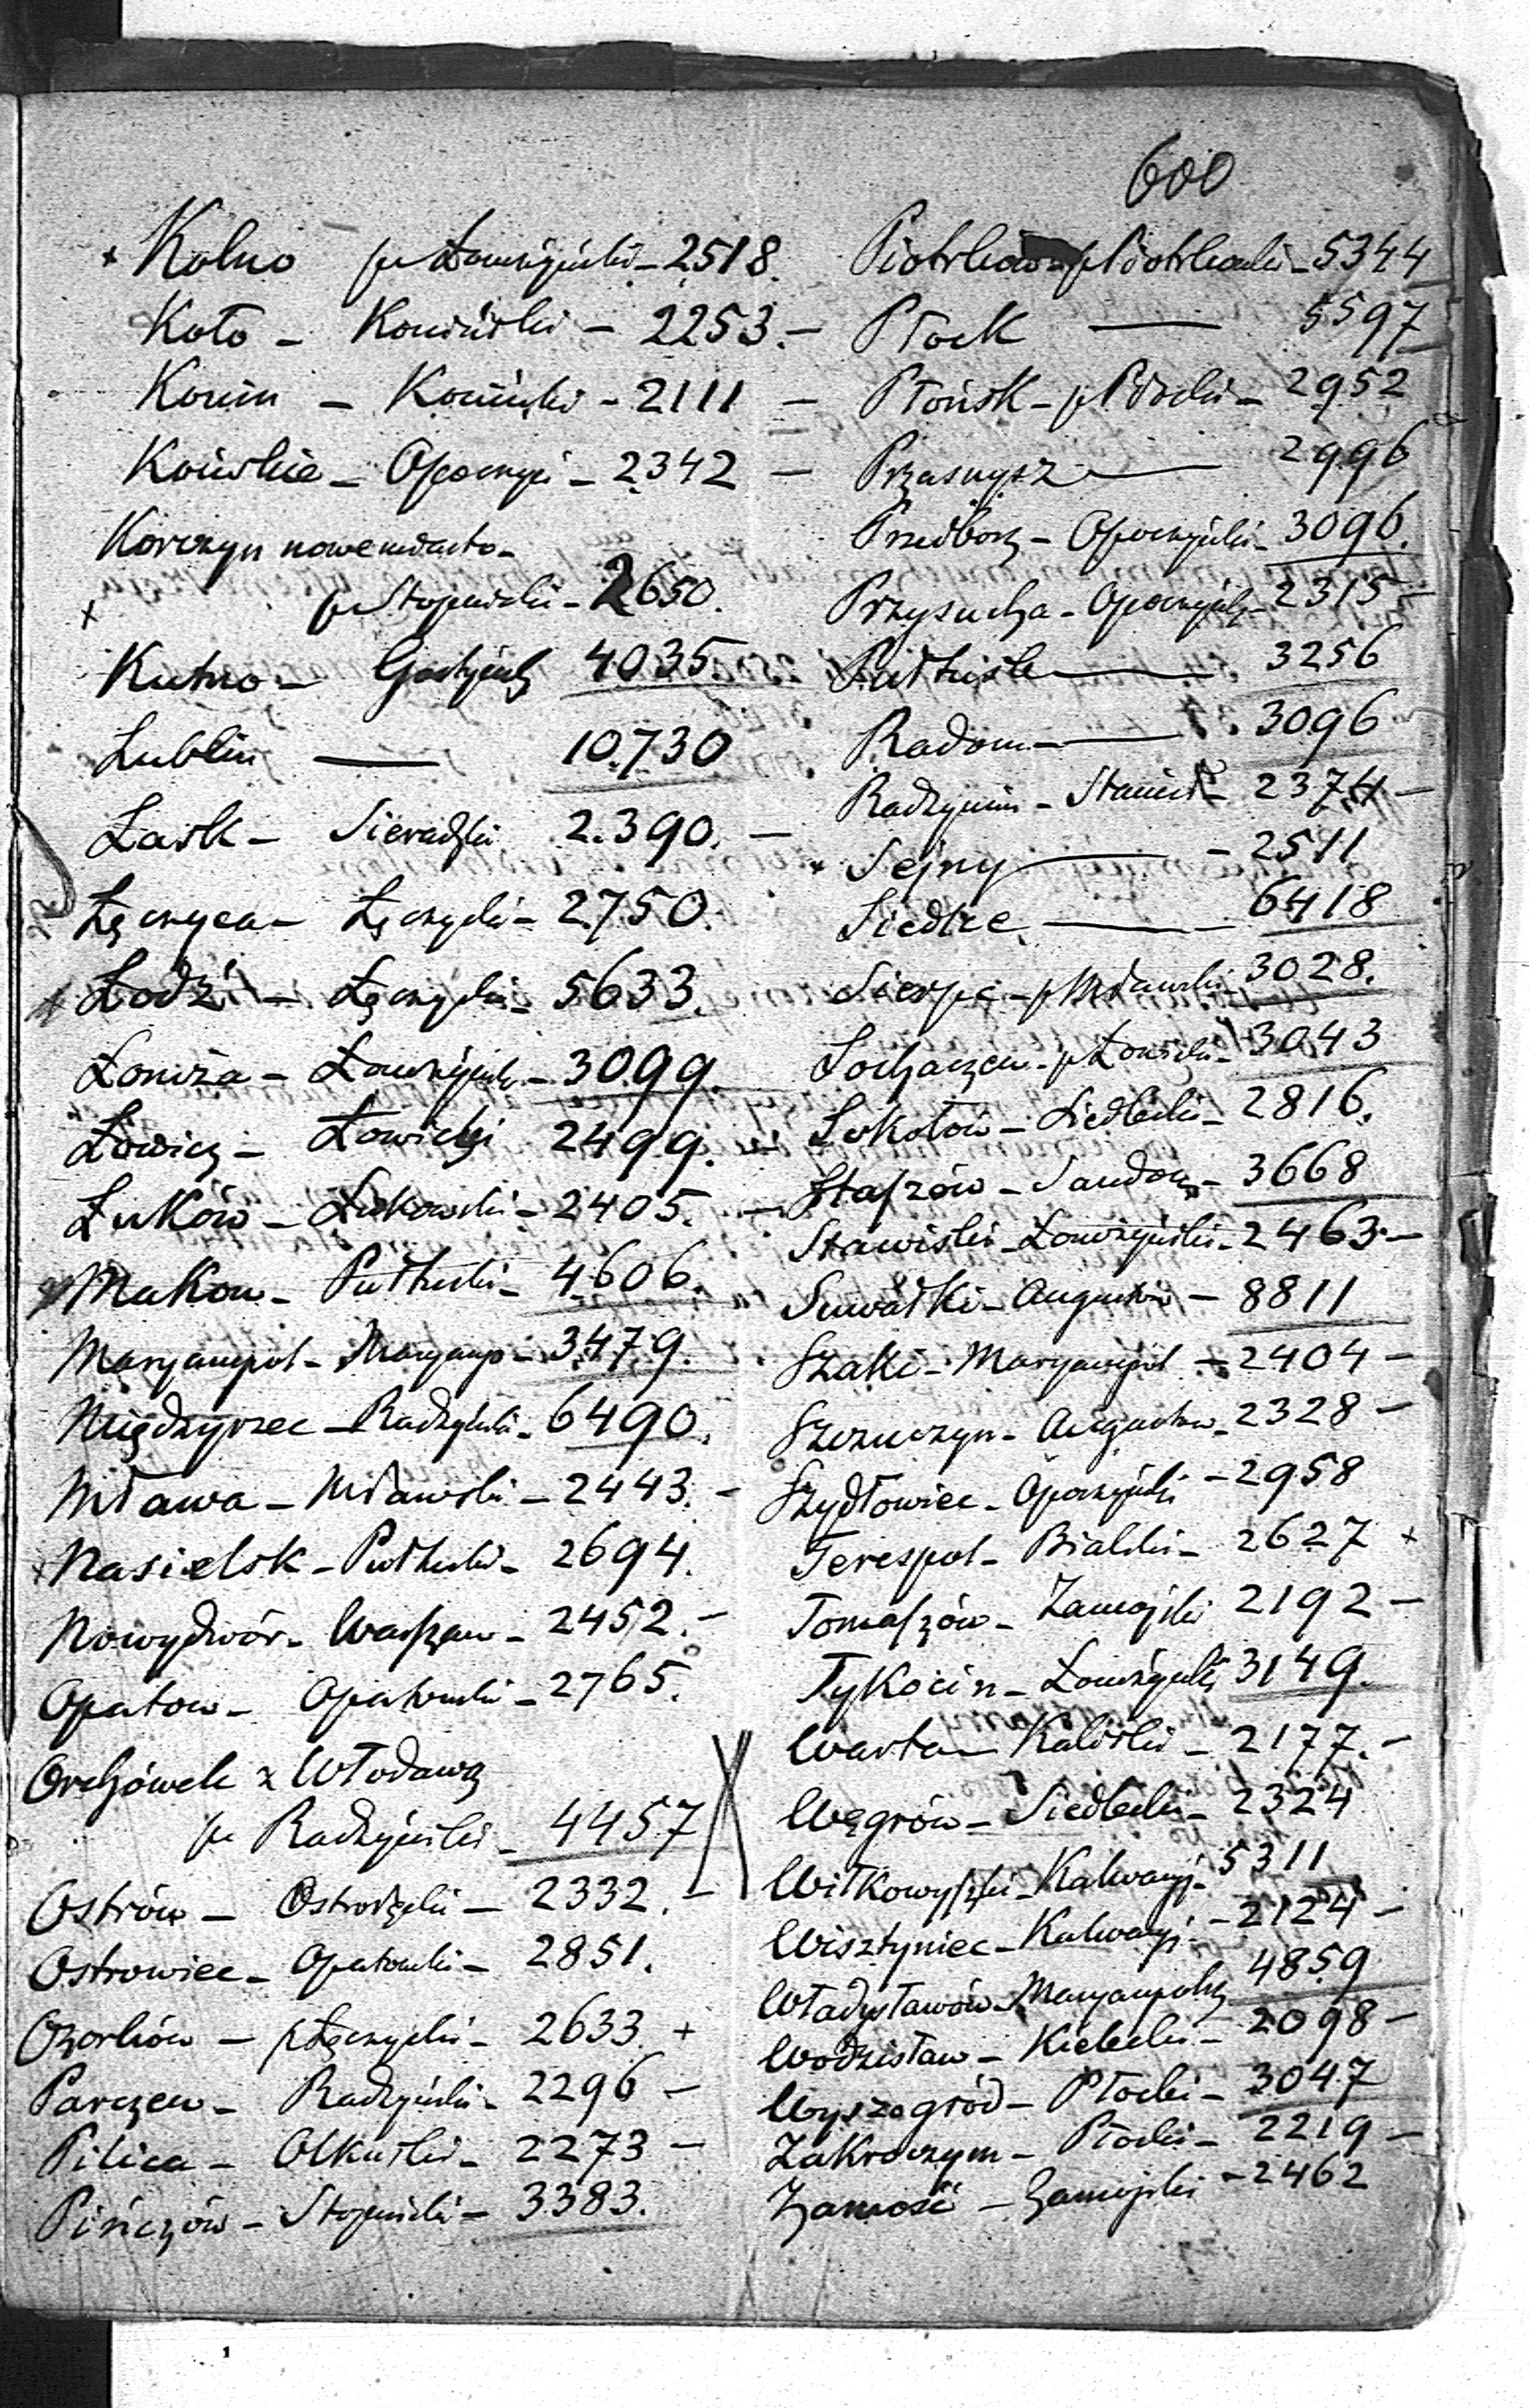 600
+ Kolno p Łomżyński - 2518.
Koło - Koniński - 2253. -
Konin - Koniński - 2111 -
Końskie - Opoczyń - 2342 -
Korczyn nowemiasto -
+ p Stopnicki - 2650.
Kutno - Gostyńsk 4035.
Lublin — 10.730
Łask - Sieradzki 2.390. -
Łęczyca - Łęczycki - 2750.
Łodź - Łęczycki - 5633.
Łomża - Łomżyńsk - 3099.
Łowicz - Łowicki 2499. -
Łuków - Łukowski - 2405. -
Maków - Pułtuski - 4606.
Maryampol - Maryamp - 3479.
Międzyrzec - Radzyński - 6490.
Mława - Mławski - 2443. -
+ Nasielsk - Pułtuski - 2694.
Nowydwór - Warszaw - 2452. -
Opatow - Opatowski - 2765.
Orchówek z Włodawą
p Radzyński - 4457
Ostrów - Ostrołęcki - 2332. -
Ostrowiec - Opatowski - 2851.
Ozorków - p Łęczycki - 2633. +
Parczew - Radzyński - 2296 -
Pilica - Olkuski - 2273 -
Pińczów - Stopnicki - 3383.
Piotrków p Piotrkowski - 5344
Płock — 5597
Płońsk - p Płocki - 2952
Przasnysz — 2996
Przedborz - Opoczyński - 3096.
Przysucha - Opoczyńsk - 2315 -
Pułtusk — 3256
Radom — 3096
Radzymin - Stanisł - 2374 -
+ Sejny — - 2511
Siedlce — - 6418
Sierpc - p Mławski 3028.
Sochaczew - p Łowicki - 3043
Sokołów - Siedlecki - 2816.
Staszów - Sandom - 3668
Stawiski - Łomżyński - 2463. -
Suwałki - Augustow - 8811
Szaki - Maryampol - 2404 -
Szczuczyn - Augustow - 2328 -
Szydłowiec - Opoczyński - 2958
Terespol - Bialski - 2627 +
Tomaszów - Zamojski 2192 -
Tykocin - Łomżyński 3149.
Warta - Kaliski - 2177. -
Węgrów - Siedlecki - 2324
Wiłkowyszki - Kalwaryj - 5311
Wisztyniec - Kalwaryj - 2124 -
Władysławów - Maryampolsk 4859
Wodzisław - Kielecki - 2098 -
Wyszogród - Płocki - 3047
Zakroczym - Płocki - 2219 -
Zamość - Zamojski - 2462